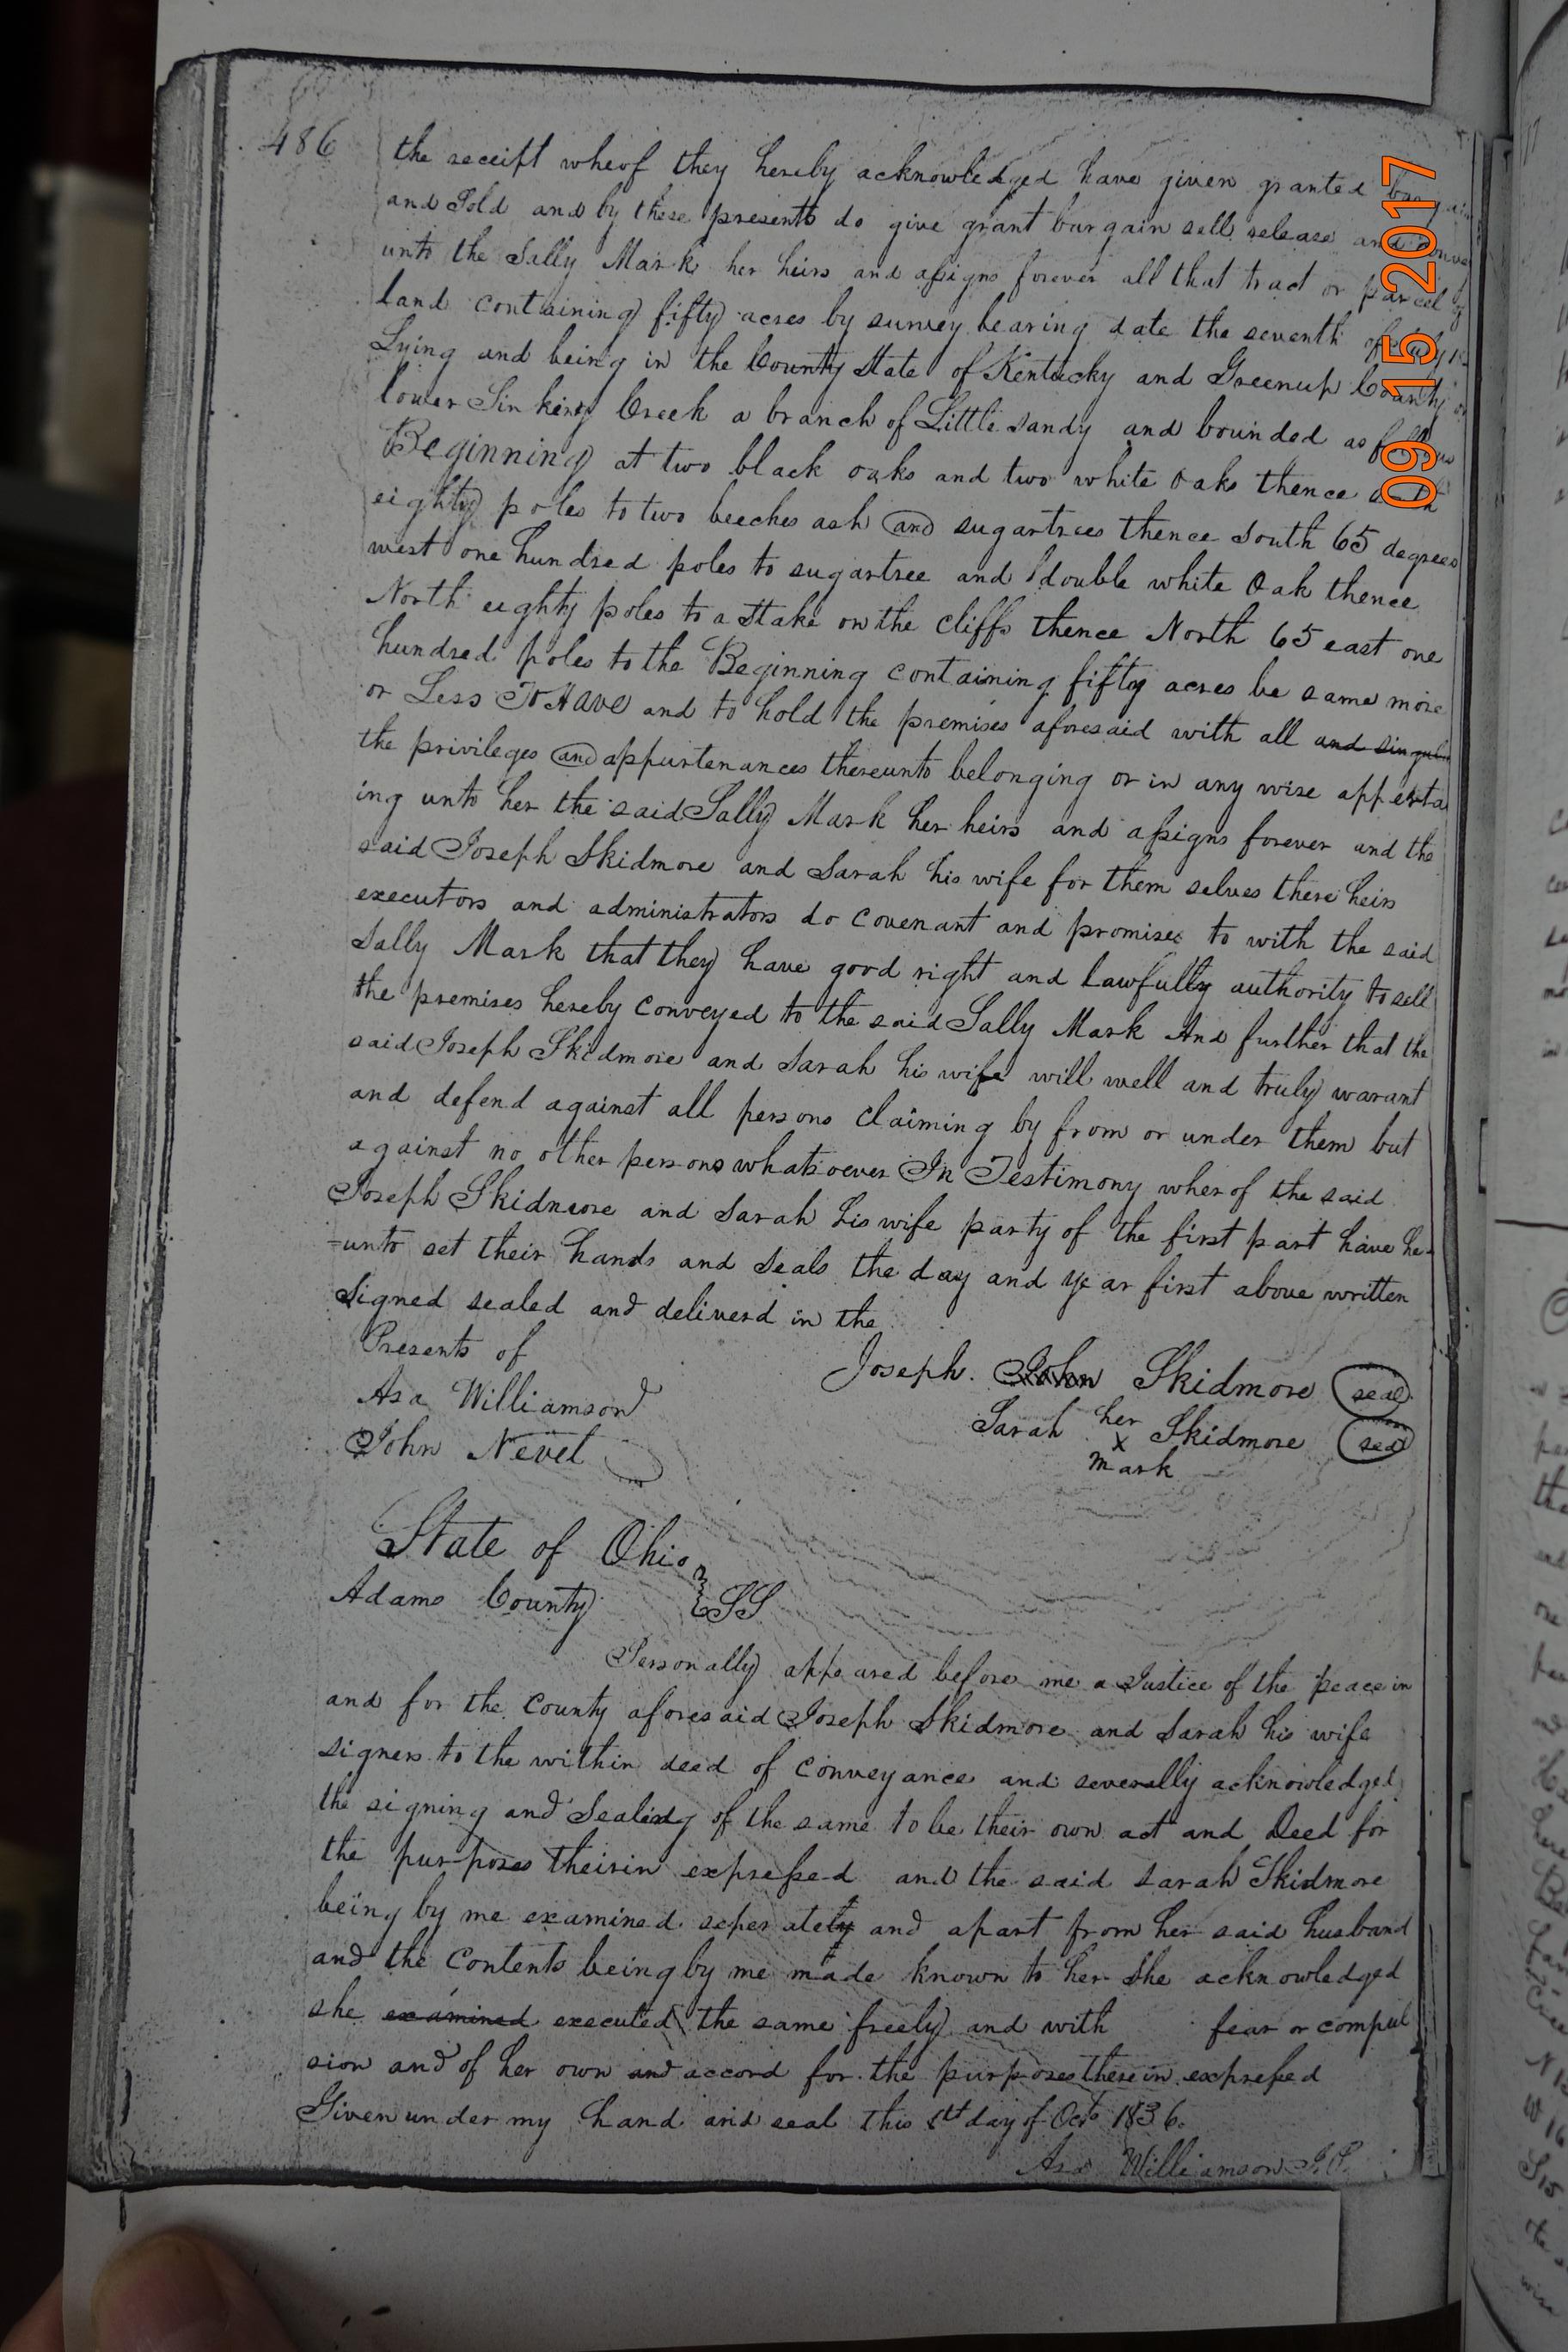 486
the receipt wherof they hereby acknowledged have given granted
and Sold and by these presents do give grant bargain sell release and
unto the Sally Mark her heirs and assigns forever all that tract or parcel of
land containing fifty acres by survey bearing date the seventh of
Lying and being in the County State of Kentucky and Greenup County on
lower Sinking Creek a branch of Little Sandy and bounded as follows
Beginning at two black oaks and two white oaks thence
eighty poles to two beeches ash and sugartrees thence South 65 degrees
west one hundred poles to sugartree and double white Oak thence
North eighty poles to a Stake on the cliffs thence North 65 east one
hundred poles to the Beginning containing fifty acres be same more
or Less To Have and to hold the premises aforesaid with all and singular
the privileges and appurtenances thereunto belonging or in any wise apperta
ing unto her the said Sally Mark her heirs and assigns forever and the
said Joseph Skidmore and Sarah his wife for them selves there heirs
executors and administrators do covenant and promises to with the said
Sally Mark that they have good right and Lawfully authority to sell
the premises hereby conveyed to the said Sally Mark And further that the
said Joseph Skidmore and Sarah his wife will well and truly warant
and defend against all persons claiming by from or under them but
against no other persons whatsoever In Testimony wherof the said
Joseph Skidmore and Sarah his wife party of the first part have he-
=unto set their hands and seals the day and year first above written
Signed sealed and deliverd in the
Presents of
Joseph. John Skidmore seal
Asa Williamson
Sarah her x mark Skidmore seal
John Nevel
State of Ohio
Adams County SS
Personally appeared before me a Justice of the peace in
and for the County aforesaid Joseph Skidmore and Sarah his wife
signers to the within deed of conveyance and severally acknowledged
the signing and Sealing of the same to be their own act and Deed for
the purposes theirin expressed and the said Sarah Skidmore
being by me examined seperately and apart from her said husband
and the contents being by me made known to her She acknowledged
she examined executed the same freely and with fear or compul
sion and of her own and accord for the purposes therein expressed
Given under my hand and seal this 1st day of Oct 1836.
Asa Williamson J.P.
09 15 2017